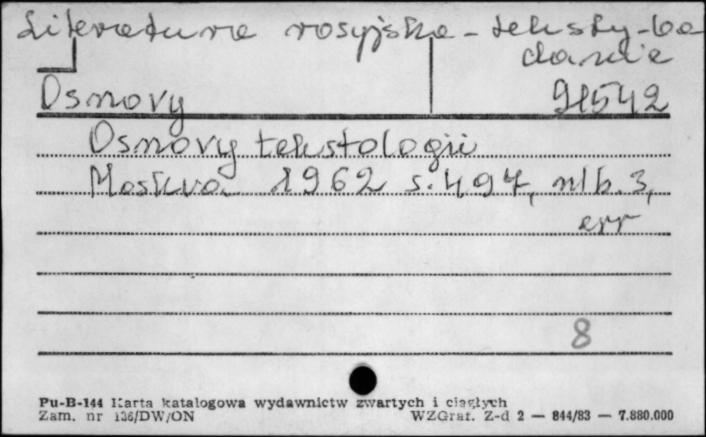 Literatura rosyjska - teksty - ba
danie
Osnovy 91542
Osnovy tekstologii
Moskva 1962 s. 497, nlb. 3,
err
8
Pu-B-144 Karta katalogowa wydawnictw zwartych i ciągłych
Zam. nr 136/DW/ON WZGraf. Z-d 2 — 844/83 — 7.880.000